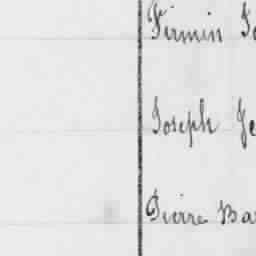 Firmin
Joseph Je
Pierre Ba